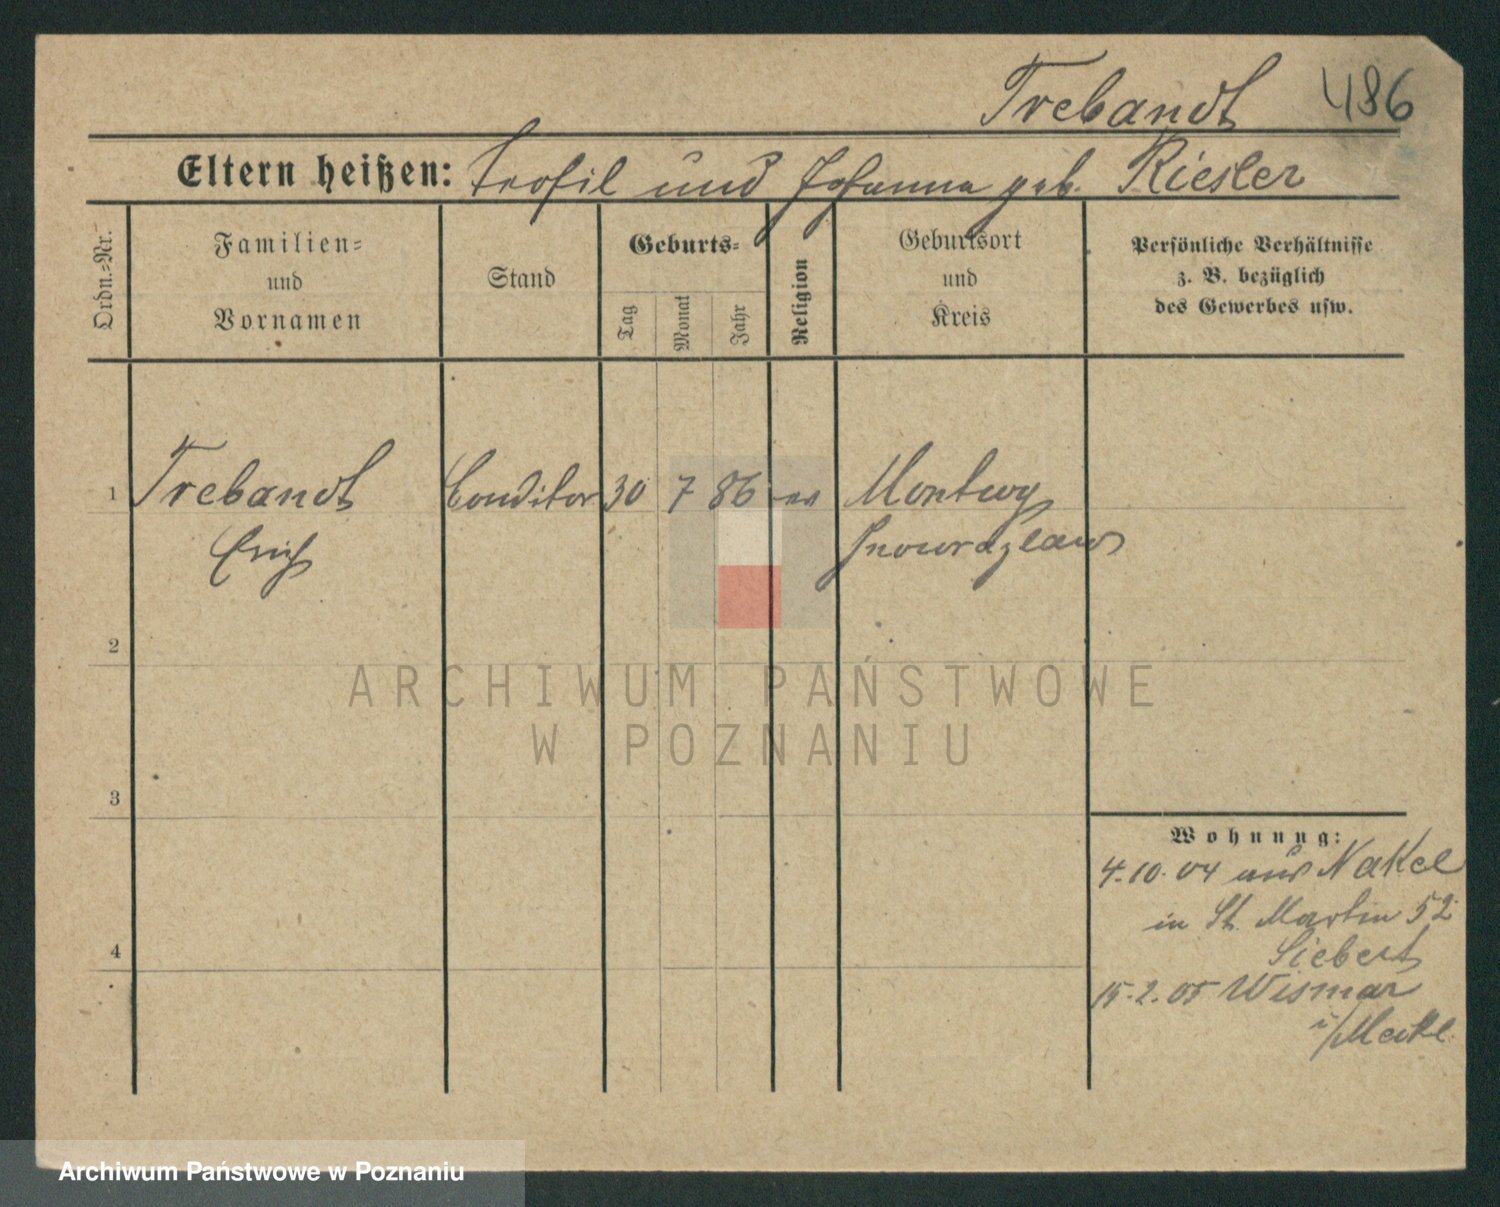 Trebandt 486
Eltern heißen: Teofil und Johanna geb. Riesler
Ordn.=Nr.
Familien=
und
Vornamen
Stand
Geburts=
Tag
Monat
Jahr
Religion
Geburtsort
und
Kreis
Persönliche Verhältnisse
z. B. bezüglich
des Gewerbes usw.
1 Trebandt Conditor 30 7 86 ev Montwy
Erich Inowrazlaw
2
3
4
Wohnung:
4.10.04 aus Nakel
in St. Martin 52
Siebert
15.2.05 Wismar
i/Meckl.
ARCHIWUM PAŃSTWOWE
W POZNANIU
Archiwum Państwowe w Poznaniu